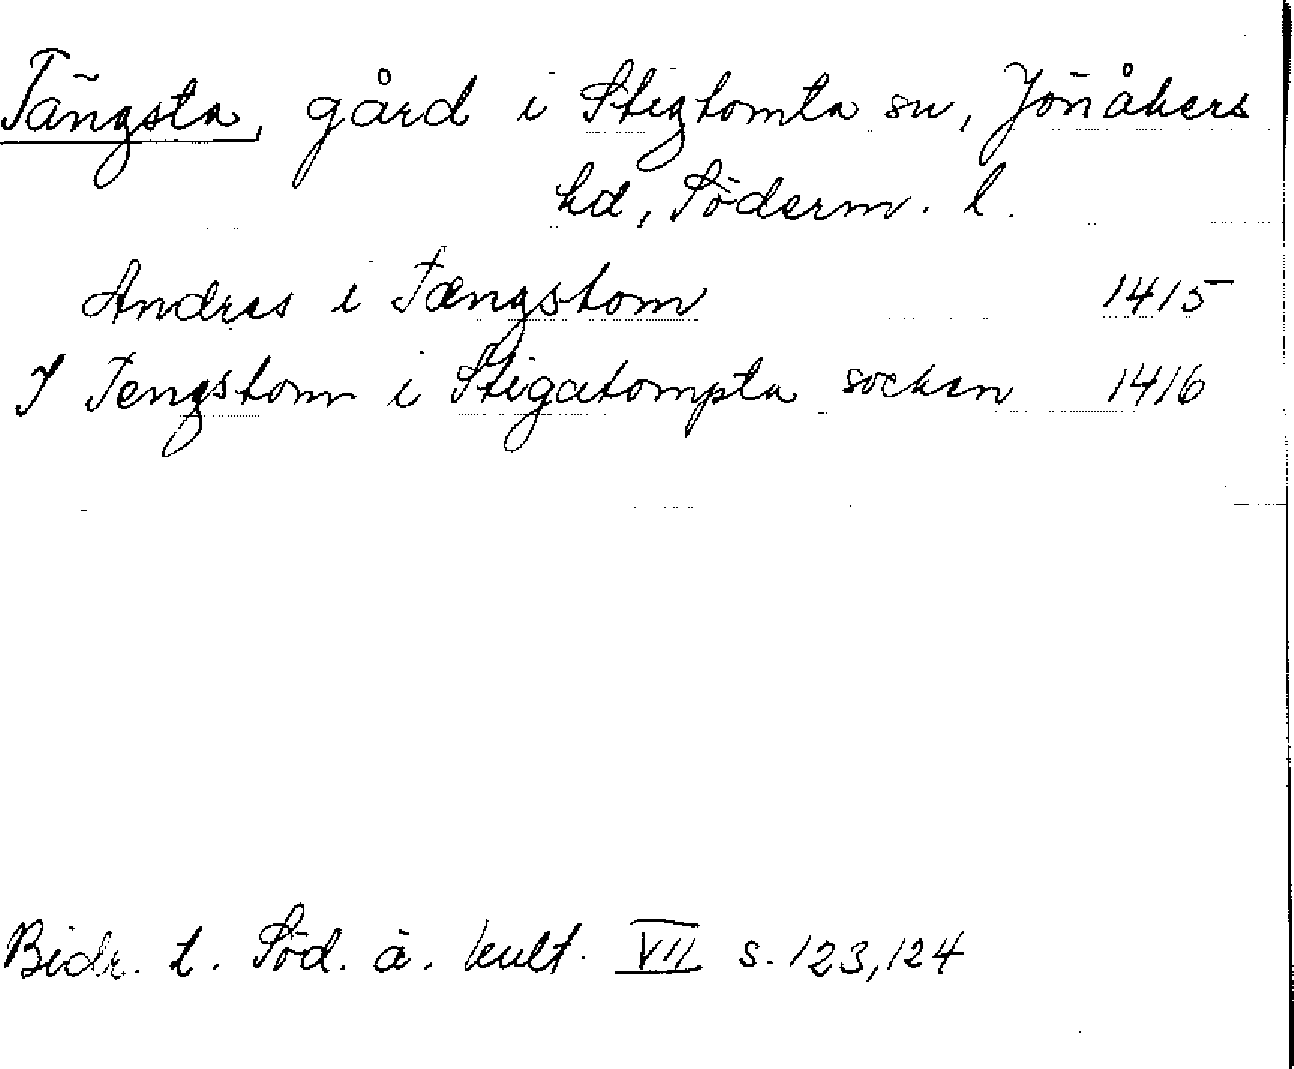 Tängsta, gård i Stigtomta sn, Jönåkers
hd, Söderm. l.
Andres i Tængstom 1415
J Tengstom i Stigatompta sockan 1416
Bidr. t. Söd. ä. kult. VII s. 123, 124